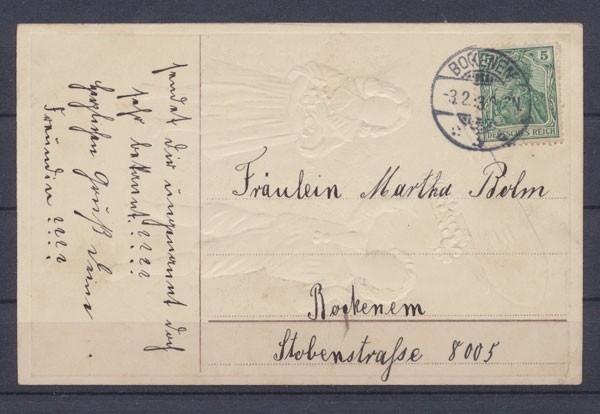 sendet dir ungenannt doch
sehr bekannt.????
herzlichen Gruß Deine
Freundin ????
BOKENEM
5
DEUTSCHES REICH
Fräulein Martha Bolm
Bockenem
Stobenstraße 8005